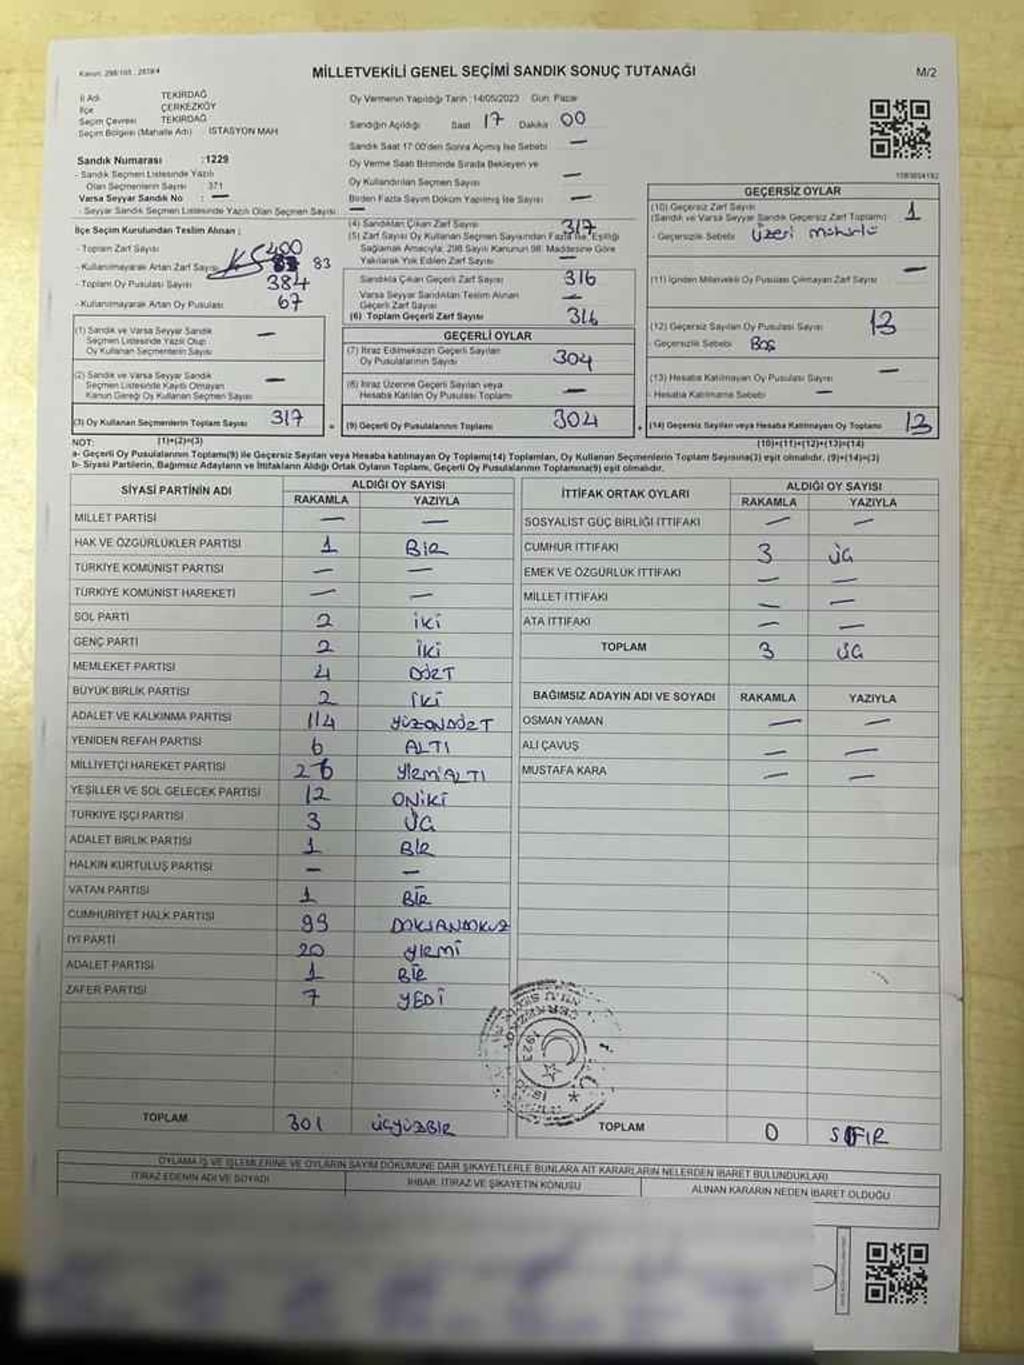 Kanun: 298/105 , 2839/4
MİLLETVEKİLİ GENEL SEÇİMİ SANDIK SONUÇ TUTANAĞI
M/2
İl Adı TEKİRDAĞ
İlçe ÇERKEZKÖY
Seçim Çevresi TEKİRDAĞ
Seçim Bölgesi (Mahalle Adı) İSTASYON MAH
Sandık Numarası :1229
- Sandık Seçmen Listesinde Yazılı
Olan Seçmenlerin Sayısı 371
Varsa Seyyar Sandık No : —
- Seyyar Sandık Seçmen Listesinde Yazılı Olan Seçmen Sayısı —
İlçe Seçim Kurulundan Teslim Alınan :
- Toplam Zarf Sayısı 400
- Kullanılmayarak Artan Zarf Sayısı 83
- Toplam Oy Pusulası Sayısı 384
- Kullanılmayarak Artan Oy Pusulası 67
(1) Sandık ve Varsa Seyyar Sandık
Seçmen Listesinde Yazılı Olup
Oy Kullanan Seçmenlerin Sayısı —
(2) Sandık ve Varsa Seyyar Sandık
Seçmen Listesinde Kayıtlı Olmayan
Kanun Gereği Oy Kullanan Seçmen Sayısı —
(3) Oy Kullanan Seçmenlerin Toplam Sayısı 317
Oy Vermenin Yapıldığı Tarih :14/05/2023 Gün: Pazar
Sandığın Açıldığı Saat 17 Dakika 00
Sandık Saat 17:00'den Sonra Açılmış İse Sebebi —
Oy Verme Saati Bitiminde Sırada Bekleyen ve
Oy Kullandırılan Seçmen Sayısı —
Birden Fazla Sayım Döküm Yapılmış İse Sayısı —
(4) Sandıktan Çıkan Zarf Sayısı 317
(5) Zarf Sayısı Oy Kullanan Seçmen Sayısından Fazla İse, Eşitliği
Sağlamak Amacıyla; 298 Sayılı Kanunun 98. Maddesine Göre
Yakılarak Yok Edilen Zarf Sayısı —
Sandıkta Çıkan Geçerli Zarf Sayısı 316
Varsa Seyyar Sandıktan Teslim Alınan
Geçerli Zarf Sayısı —
(6) Toplam Geçerli Zarf Sayısı 316
GEÇERLİ OYLAR
(7) İtiraz Edilmeksizin Geçerli Sayılan
Oy Pusulalarının Sayısı 304
(8) İtiraz Üzerine Geçerli Sayılan veya
Hesaba Katılan Oy Pusulası Toplamı —
= (9) Geçerli Oy Pusulalarının Toplamı 304
GEÇERSİZ OYLAR
(10) Geçersiz Zarf Sayısı
(Sandık ve Varsa Seyyar Sandık Geçersiz Zarf Toplamı) 1
- Geçersizlik Sebebi Üzeri mühürlü
(11) İçinden Milletvekili Oy Pusulası Çıkmayan Zarf Sayısı —
(12) Geçersiz Sayılan Oy Pusulası Sayısı 13
- Geçersizlik Sebebi Boş
(13) Hesaba Katılmayan Oy Pusulası Sayısı —
- Hesaba Katılmama Sebebi —
+ (14) Geçersiz Sayılan veya Hesaba Katılmayan Oy Toplamı 13
NOT: (1)+(2)=(3) (10)+(11)+(12)+(13)=(14)
a- Geçerli Oy Pusulalarının Toplamı(9) ile Geçersiz Sayılan veya Hesaba katılmayan Oy Toplamı(14) Toplamları, Oy Kullanan Seçmenlerin Toplam Sayısına(3) eşit olmalıdır. (9)+(14)=(3)
b- Siyasi Partilerin, Bağımsız Adayların ve İttifakların Aldığı Ortak Oyların Toplamı, Geçerli Oy Pusulalarının Toplamına(9) eşit olmalıdır.
SİYASİ PARTİNİN ADI ALDIĞI OY SAYISI
RAKAMLA YAZIYLA
MİLLET PARTİSİ — —
HAK VE ÖZGÜRLÜKLER PARTİSİ 1 BİR
TÜRKİYE KOMÜNİST PARTİSİ — —
TÜRKİYE KOMÜNİST HAREKETİ — —
SOL PARTİ 2 İKİ
GENÇ PARTİ 2 İKİ
MEMLEKET PARTİSİ 4 DÖRT
BÜYÜK BİRLİK PARTİSİ 2 İKİ
ADALET VE KALKINMA PARTİSİ 114 YÜZONDÖRT
YENİDEN REFAH PARTİSİ 6 ALTI
MİLLİYETÇİ HAREKET PARTİSİ 26 YİRMİALTI
YEŞİLLER VE SOL GELECEK PARTİSİ 12 ONİKİ
TÜRKİYE İŞÇİ PARTİSİ 3 ÜÇ
ADALET BİRLİK PARTİSİ 1 BİR
HALKIN KURTULUŞ PARTİSİ — —
VATAN PARTİSİ 1 BİR
CUMHURİYET HALK PARTİSİ 99 DOKSANDOKUZ
İYİ PARTİ 20 YİRMİ
ADALET PARTİSİ 1 BİR
ZAFER PARTİSİ 7 YEDİ
TOPLAM 301 ÜÇYÜZBİR
İTTİFAK ORTAK OYLARI ALDIĞI OY SAYISI
RAKAMLA YAZIYLA
SOSYALİST GÜÇ BİRLİĞİ İTTİFAKI — —
CUMHUR İTTİFAKI 3 ÜÇ
EMEK VE ÖZGÜRLÜK İTTİFAKI — —
MİLLET İTTİFAKI — —
ATA İTTİFAKI — —
TOPLAM 3 ÜÇ
BAĞIMSIZ ADAYIN ADI VE SOYADI RAKAMLA YAZIYLA
OSMAN YAMAN — —
ALİ ÇAVUŞ — —
MUSTAFA KARA — —
1923
TOPLAM 0 SIFIR
OYLAMA İŞ VE İŞLEMLERİNE VE OYLARIN SAYIM DÖKÜMÜNE DAİR ŞİKAYETLERLE BUNLARA AİT KARARLARIN NELERDEN İBARET BULUNDUKLARI
İTİRAZ EDENİN ADI VE SOYADI İHBAR, İTİRAZ VE ŞİKAYETİN KONUSU ALINAN KARARIN NEDEN İBARET OLDUĞU